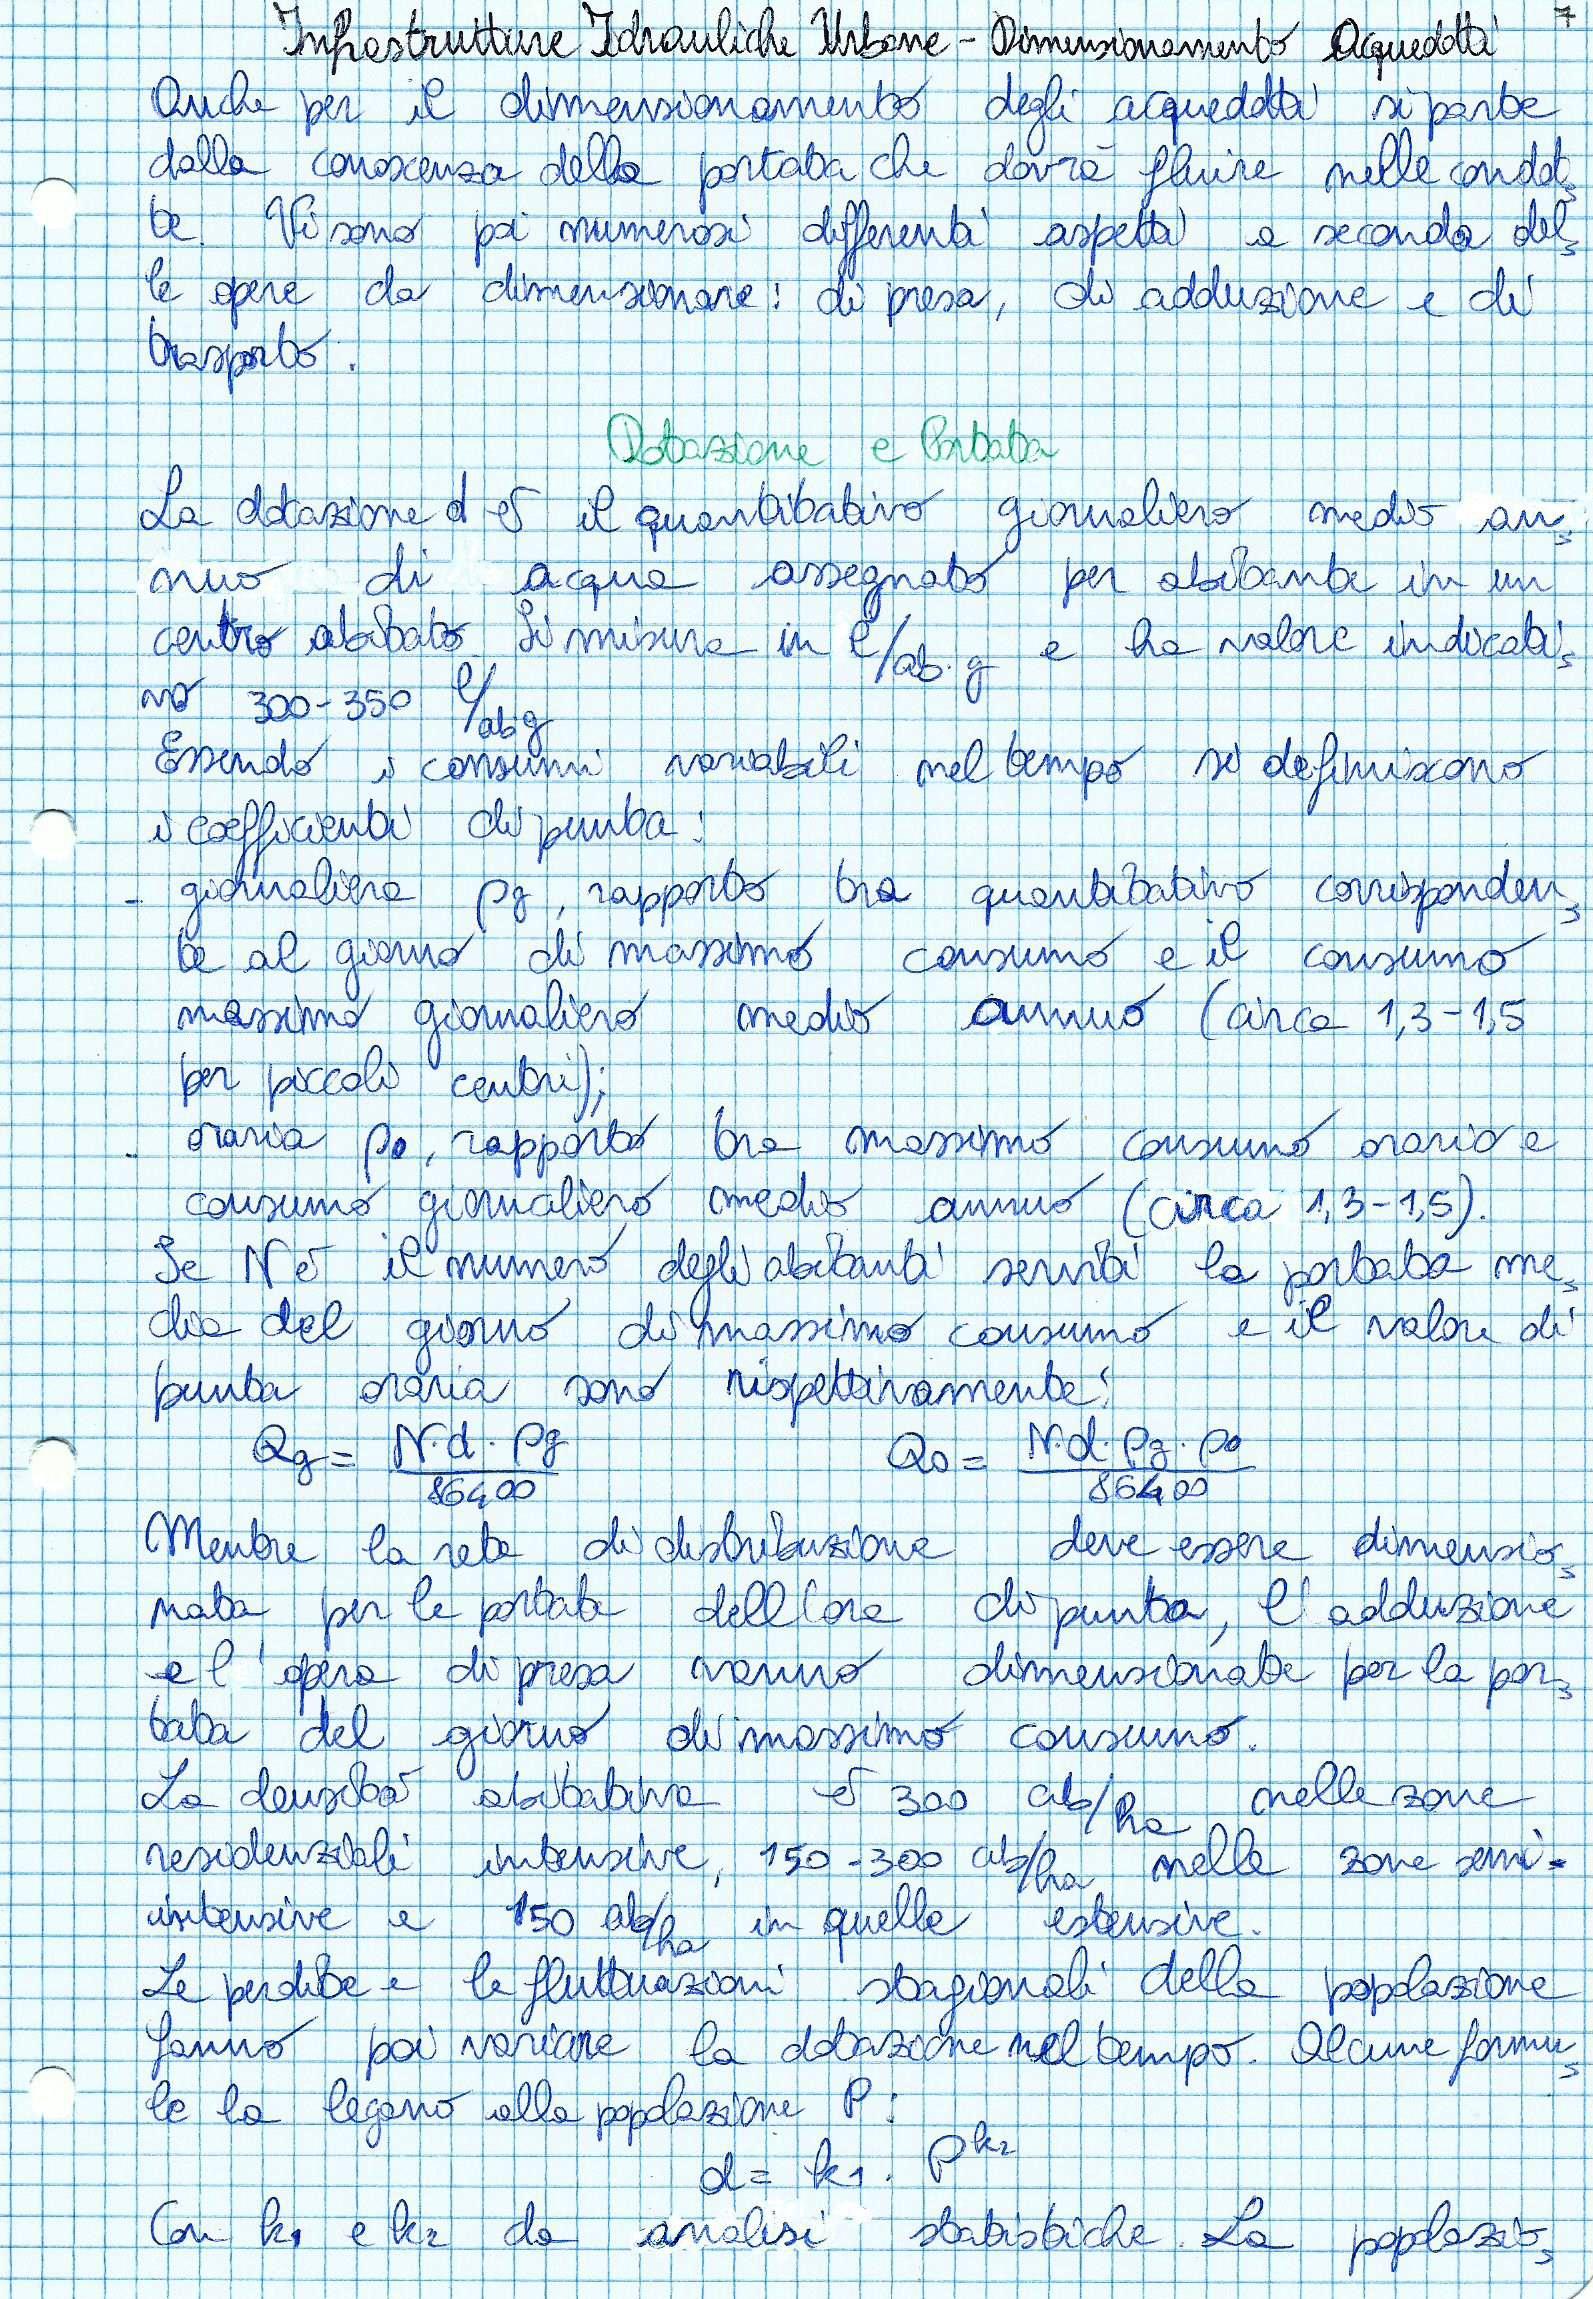 7
Infrastrutture Idrauliche Urbane - Dimensionamento Acquedotti
Anche per il dimensionamento degli acquedotti si parte
dalla conoscenza della portata che dovrà fluire nelle condot=
te. Vi sono poi numerosi differenti aspetti a seconda del=
le opere da dimensionare: di presa, di adduzione e di
trasporto.
Dotazione e Portata
La dotazione d è il quantitativo giornaliero medio an=
nuo di acqua assegnato per abitante in un
centro abitato. Si misura in l/ab·g e ha valore indicati=
vo 300-350 l/ab·g
Essendo i consumi variabili nel tempo si definiscono
i coefficienti di punta:
- giornaliera ρg, rapporto tra quantitativo corrisponden=
te al giorno di massimo consumo e il consumo
massimo giornaliero medio annuo (circa 1,3-1,5
per piccoli centri);
- oraria ρo, rapporto tra massimo consumo orario e
consumo giornaliero medio annuo (circa 1,3-1,5).
Se N è il numero degli abitanti serviti la portata me=
dia del giorno di massimo consumo e il valore di
punta oraria sono rispettivamente:
Qg = N·d·ρg / 86400 Qo = N·d·ρg·ρo / 86400
Mentre la rete di distribuzione deve essere dimensio=
nata per le portate dell'ora di punta, l'adduzione
e l'opera di presa vanno dimensionate per la por=
tata del giorno di massimo consumo.
La densità abitativa è 300 ab/ha nelle zone
residenziali intensive, 150-300 ab/ha nelle zone semi-
intensive e 150 ab/ha in quelle estensive.
Le perdite e le fluttuazioni stagionali della popolazione
fanno poi variare la dotazione nel tempo. Alcune formu=
le la legano alla popolazione P:
d = k1 · P^k2
Con k1 e k2 da analisi statistiche. La popolazio=